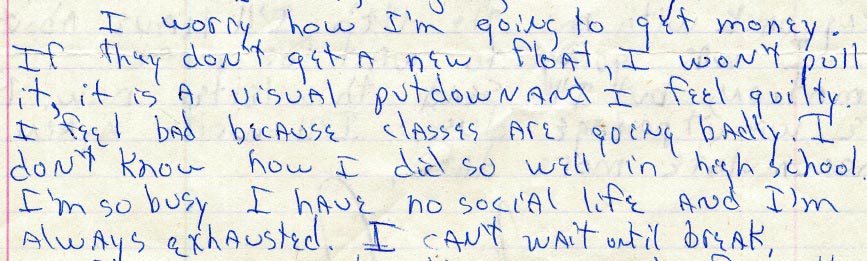 I worry how I'm going to get money.
If they don't get a new float, I won't pull
it, it is a visual putdown and I feel guilty.
I feel bad because classes are going badly. I
don't know how I did so well in high school.
I'm so busy I have no social life and I'm
always exhausted. I can't wait until break,